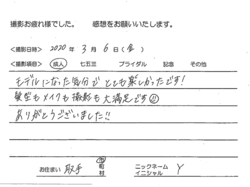 撮影お疲れ様でした。 感想をお願いいたします。
<撮影日時> 2020年 3月 6日(金)
<撮影項目> 成人 七五三 ブライダル 記念 その他
モデルになった気分で とても楽しかったです!
髪型もメイクも撮影も大満足です☺
ありがとうございました!!
お住まい 取手 市 町 村 ニックネーム イニシャル Y